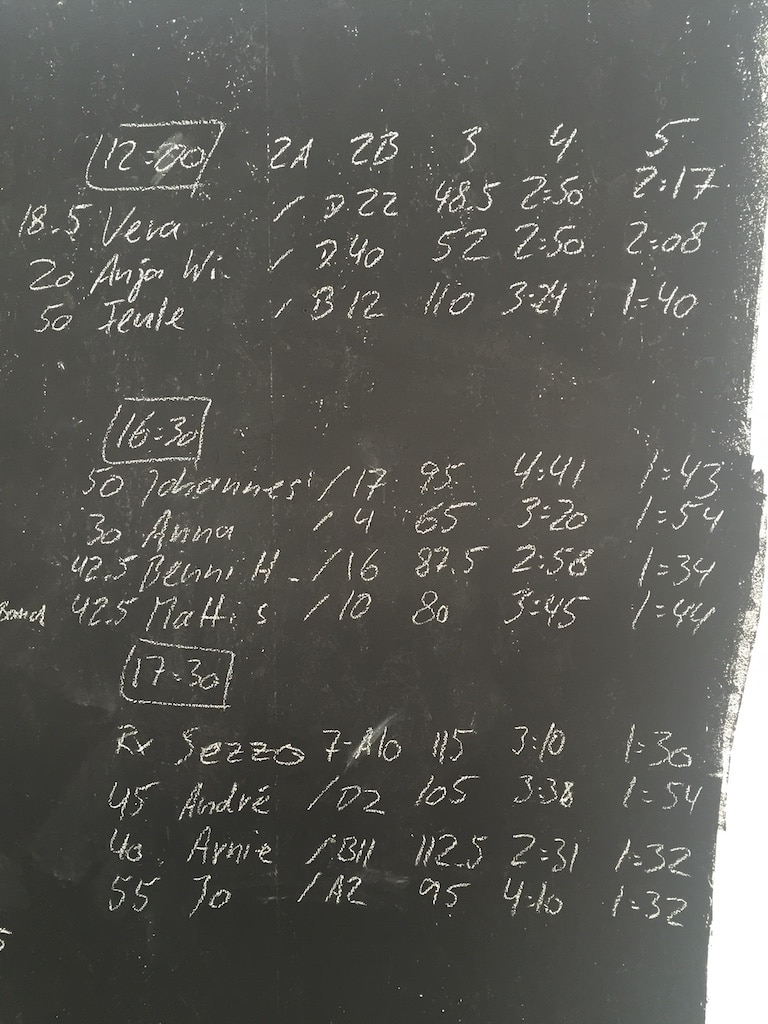 12:00 2A 2B 3 4 5
18.5 Vera / D 22 48.5 2:50 2:17
20 Anja Wi. / D 40 52 2:50 2:08
50 / B 12 110 3:21 1:40
16:30
50 Johannes / 17 95 4:41 1:43
30 Anna / 4 65 3:20 1:54
42.5 Benni H. / 16 87.5 2:58 1:34
42.5 Mattis / 10 80 3:45 1:44
17:30
Rx Sezzo 7-A10 115 3:10 1:30
45 André / D2 105 3:38 1:54
40 Arnie / B11 112.5 2:31 1:32
55 Jo / A2 95 4:10 1:32